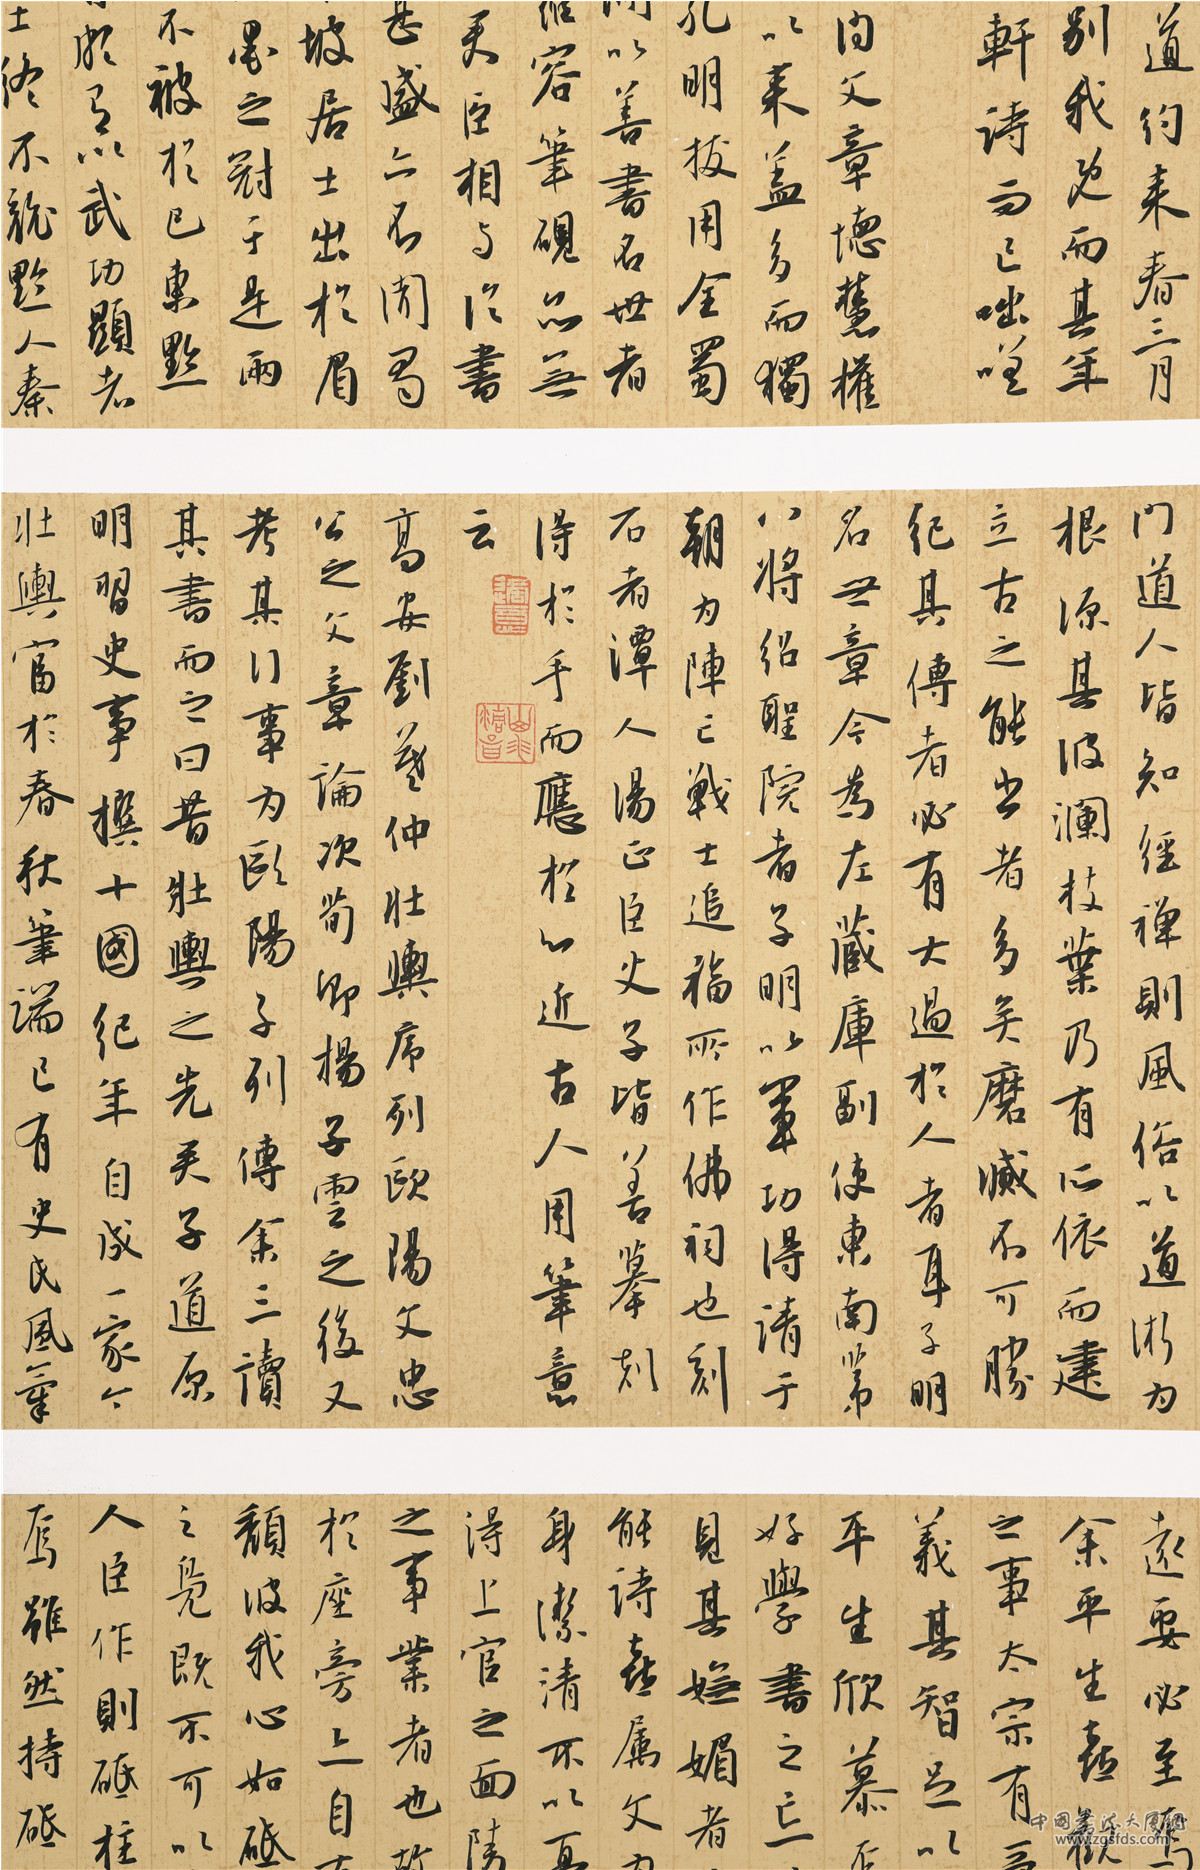 道約来春三月
別我也而其年
軒詩而已咄咄
内文章德慧權
以来蓋多而獨
孔明拔用全蜀
以善書名世者
維容筆硯亦無
天臣相与論書
甚盛亦不聞蜀
坡居士出於眉
墨之對于是兩
不被於巴東黔
頗有以武功顯者
士終不競黔人秦
門道人皆知經禅則風俗以道漸為
根源其波瀾枝葉乃有所依而建
立古之能書者多矣磨滅不可勝
紀其傳者必有大過於人者耳子明
名世章今為左藏庫副使東南第
八將紹聖院者子明以軍功得請于
朝為陣亡戰士追福所作佛祠也刻
石者潭人湯正臣父子皆善摹刻
得於手而應於心近古人用筆意
云
高安劉羲仲壯輿序列歐陽文忠
公之文章論次荀卿揚子雲之後又
考其行事為歐陽子列傳余三讀
其書而告之曰昔壯輿之先夫子道原
明習史事撰十國紀年自成一家今
壯輿富於春秋筆端已有史氏風氣
遠要必至焉
余平生喜觀
之事太宗有
義其智足以
平生欣慕
好學書之亡
見其嫵媚者
能詩喜屬文
身潔清不以
得上官之面陵
之事業者也故
於座旁亦自
頹波我心如砥
之免既不可以
人臣作則砥柱
焉雖然持砥
中國書法大圖網
www.zgsfds.com